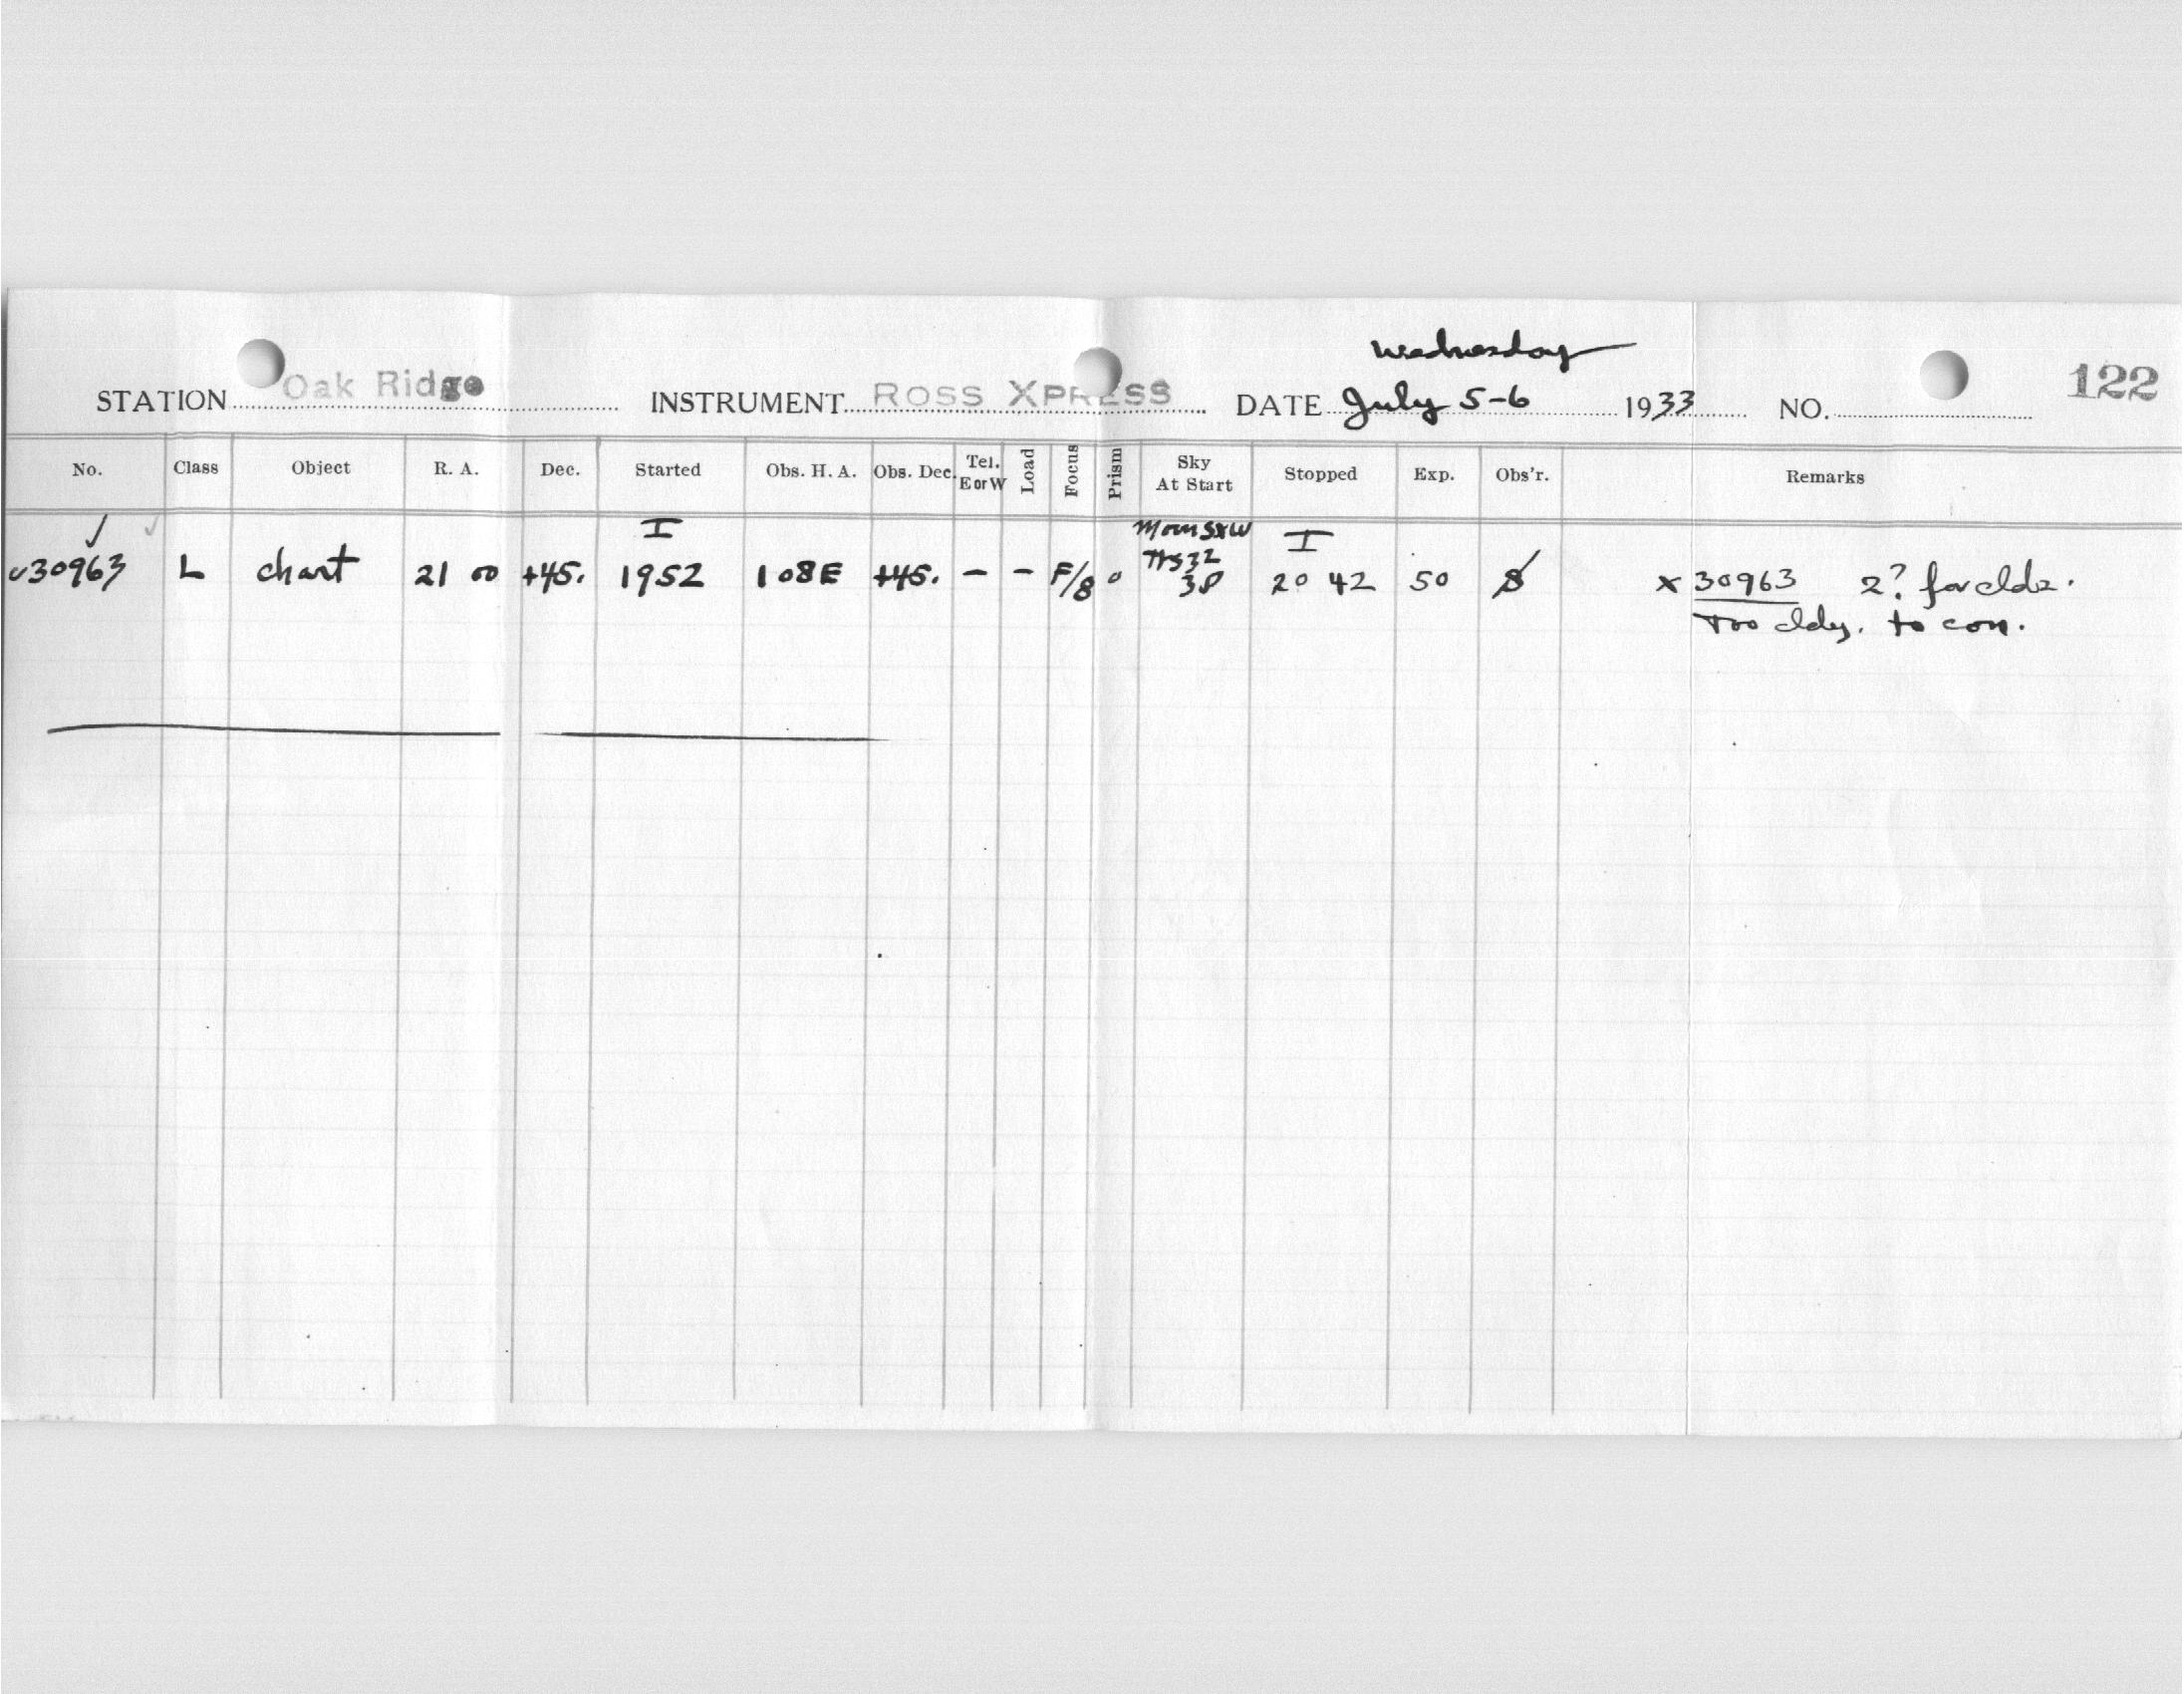 Wednesday
STATION Oak Ridge INSTRUMENT ROSS XPRESS DATE July 5-6 1933 NO. 122
No. Class Object R. A. Dec. Started Obs. H. A. Obs. Dec. Tel. E or W Load Focus Prism Sky At Start Stopped Exp. Obs'r. Remarks
I I
30963 L chart 21 00 +45. 1952 1 08E +45. - - F/8 0 20 42 50 x 30963 2? for clds.
Too cldy. to con.